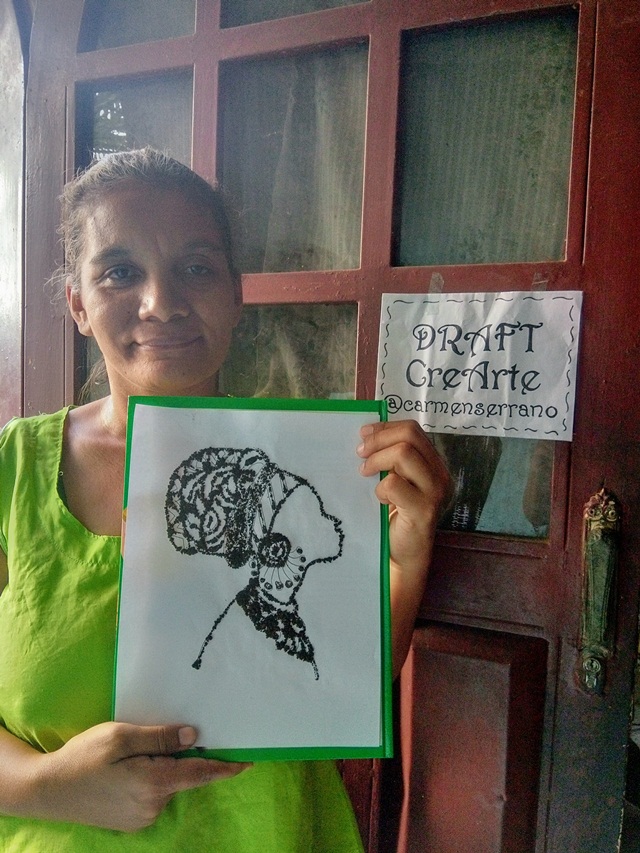 DRAFT
CreArte
@carmenserrano